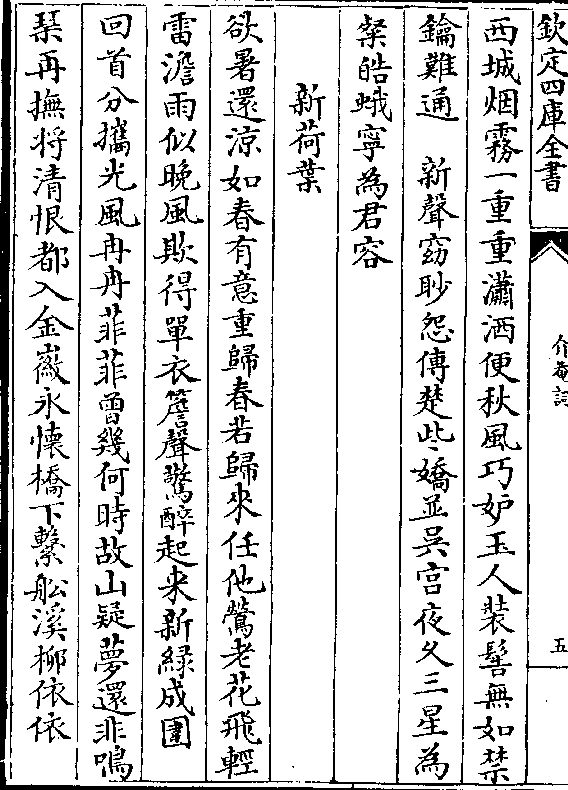 欽定四庫全書
介菴詞
五
西城烟霧一重重瀟洒便秋風巧妒玉人裝髻無如禁
鑰難通　新聲窈眇怨傳楚些嬌並吳宫夜久三星為
粲皓蛾寧為君容
新荷葉
欲暑還涼如春有意重歸春若歸來任他鶯老花飛輕
雷澹雨似晚風欺得單衣簷聲驚醉起来新緑成圍
回首分攜光風冉冉菲菲曽幾何時故山疑夢還非鳴
琹再撫将清恨都入金徽永懐橋下繫舩溪柳依依